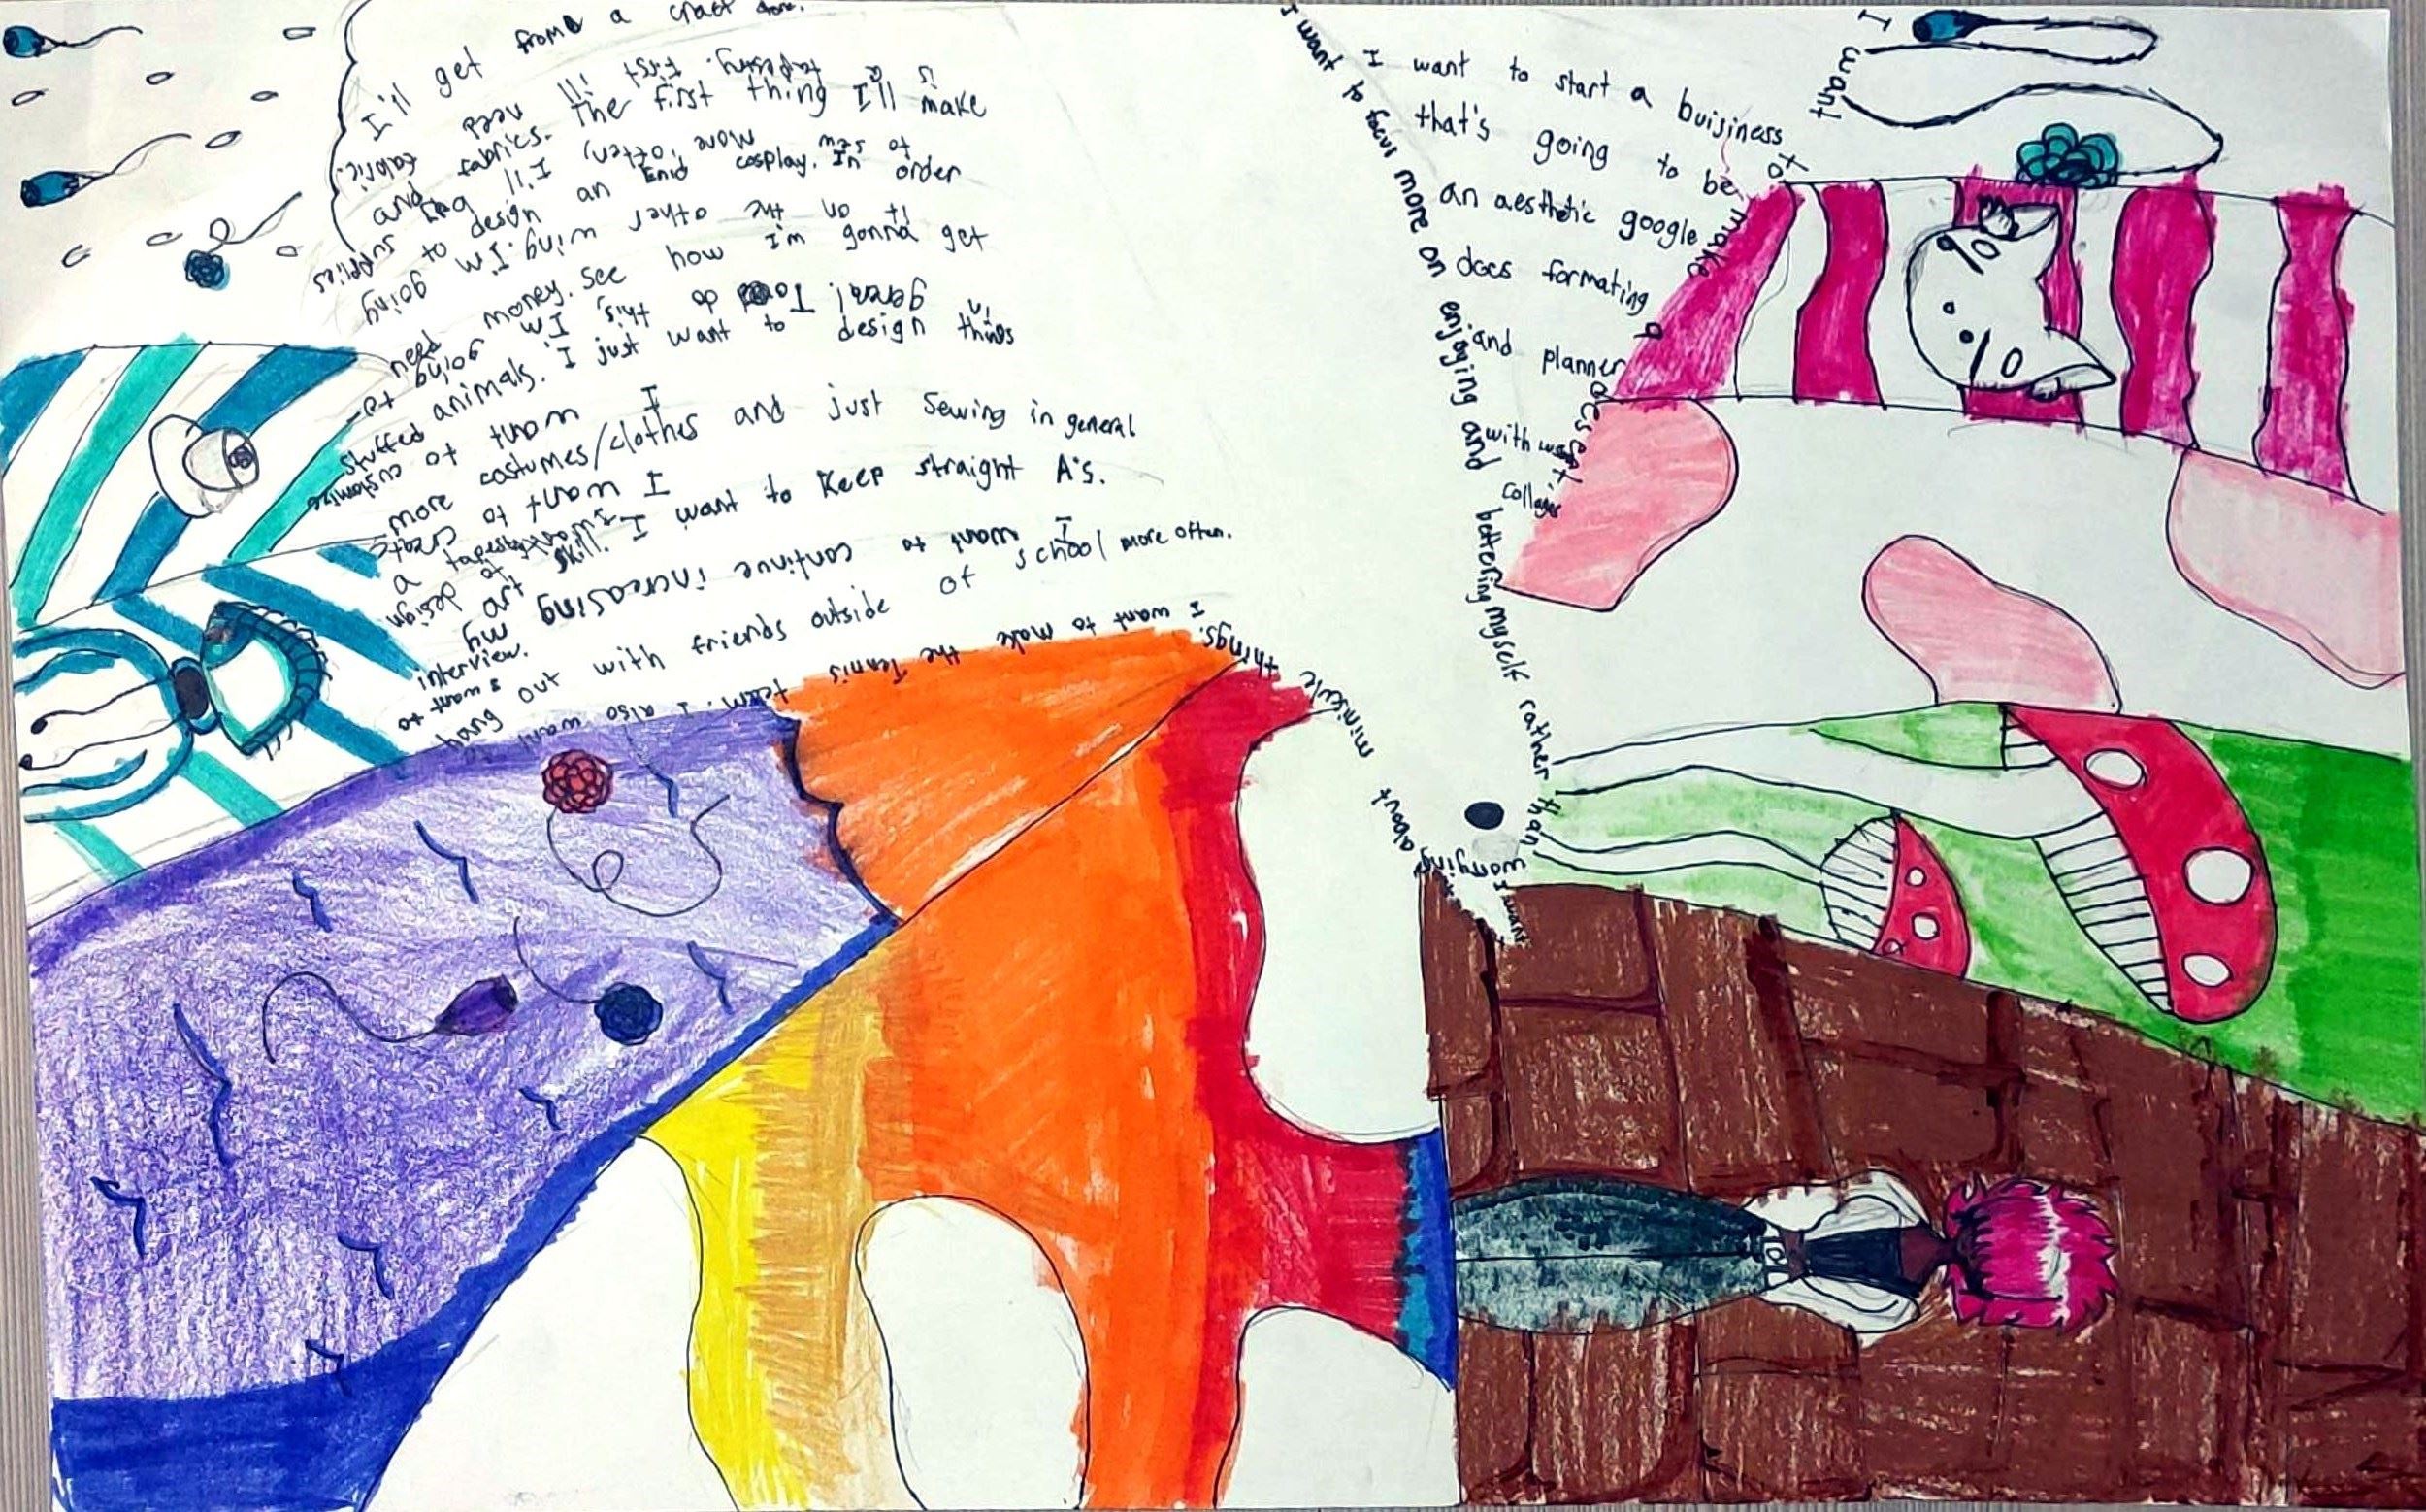 I'll get from a craft
tapestry. First ill need
and fabrics. The first thing I'll make is a
more often) I'll
to design an Enid cosplay. In order
it on the other wing. I'm going
supplies
need money. see how I'm gonna get
general. To do this, I'm going to
stuffed animals. I just want to design things in
I want to customize
more costumes/clothes and just sewing in general
I want to create
a tapestry
design
my art skill. I want to keep straight A's.
I want to continue increasing
interview.
I want to
hang out with friends outside of school more often.
I want to make the Tennis team. I also want
I want to focus more on enjoying and bettering myself rather than
worrying about miniscule things.
I want to start a buisiness
that's going to be
an aesthetic google
docs formating
and planner
with
collages
I want
to make a
I want